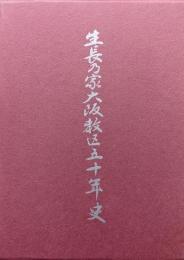 生長乃家大阪教区五十年史